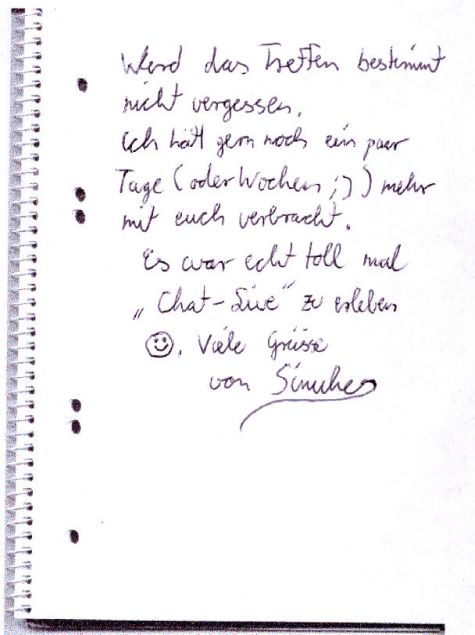 Werd das Treffen bestimmt
nicht vergessen.
Ich hätt gern noch ein paar
Tage (oder Wochen ;) ) mehr
mit euch verbracht.
Es war echt toll mal
„Chat-Live“ zu erleben
☺. Viele Grüsse
von Sinuhe